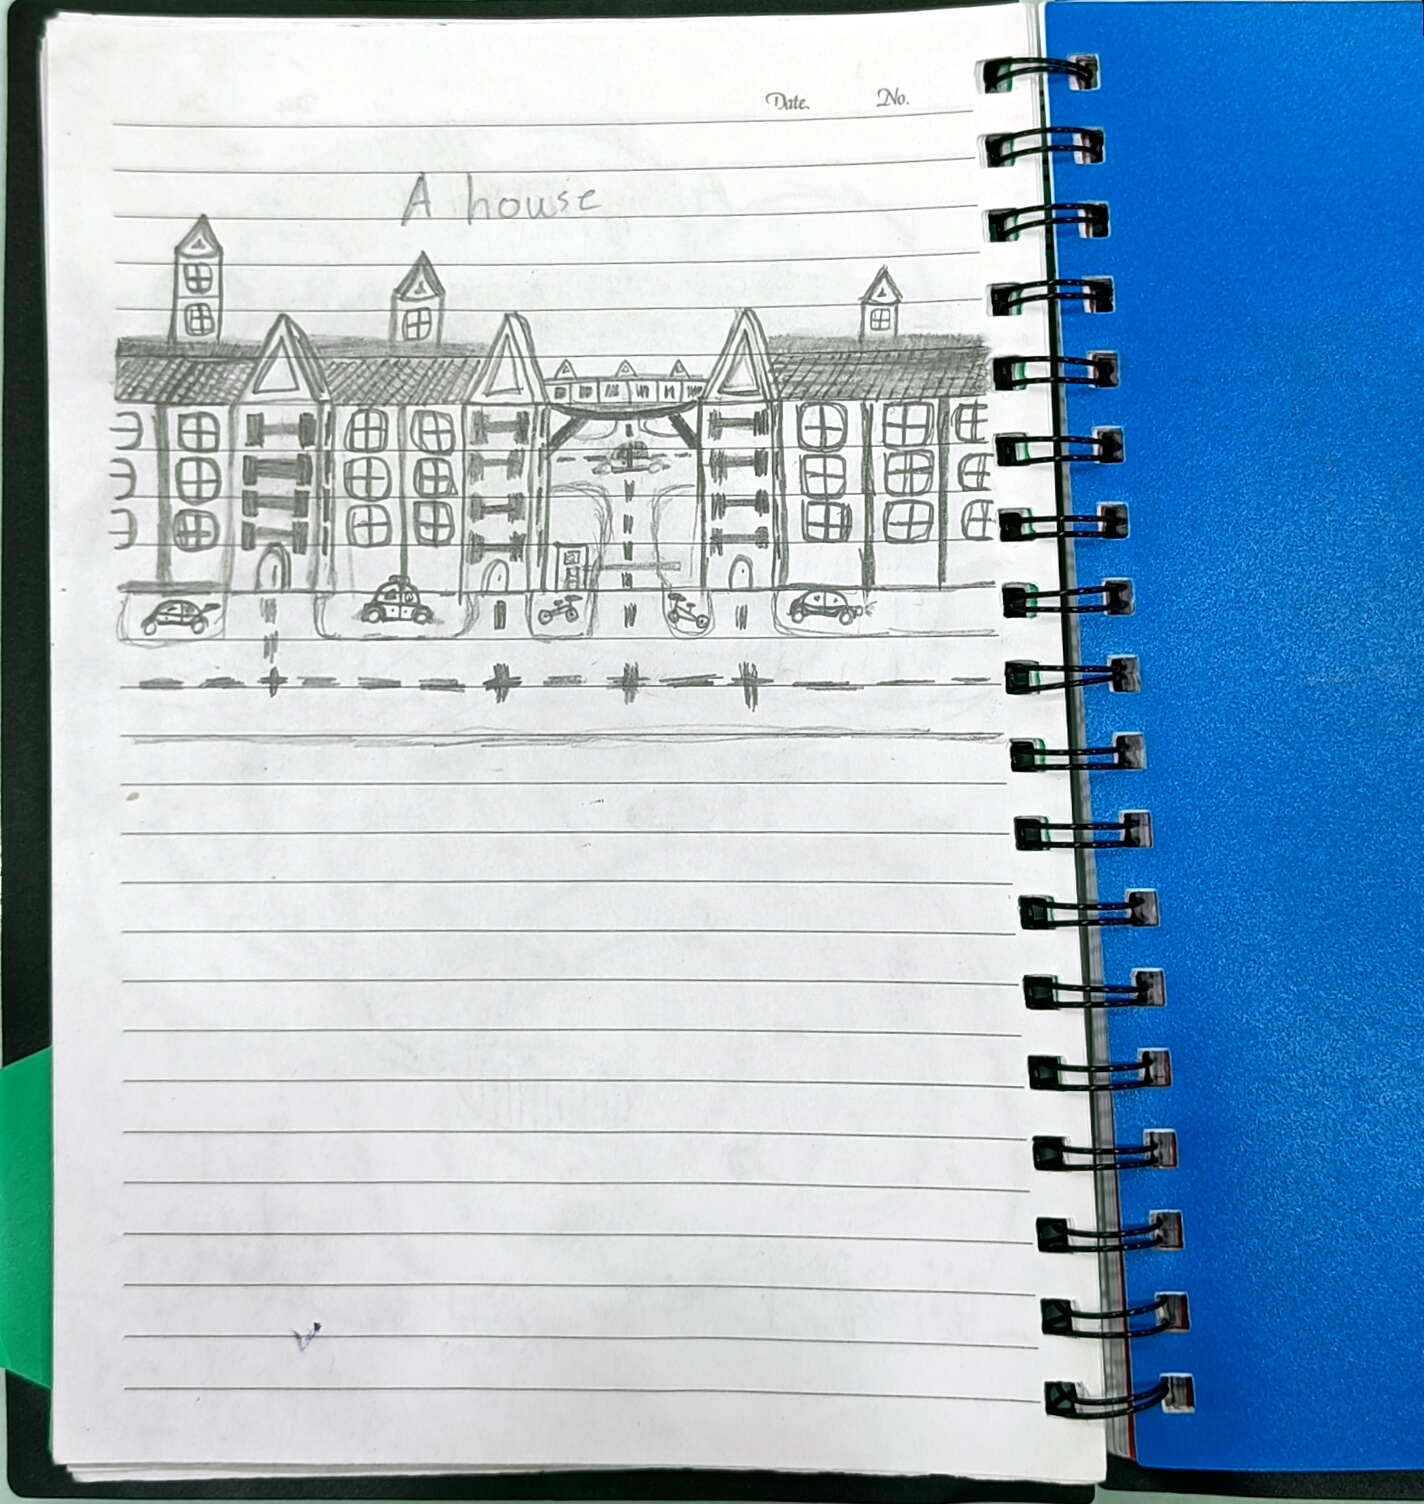 Date. No.
A house